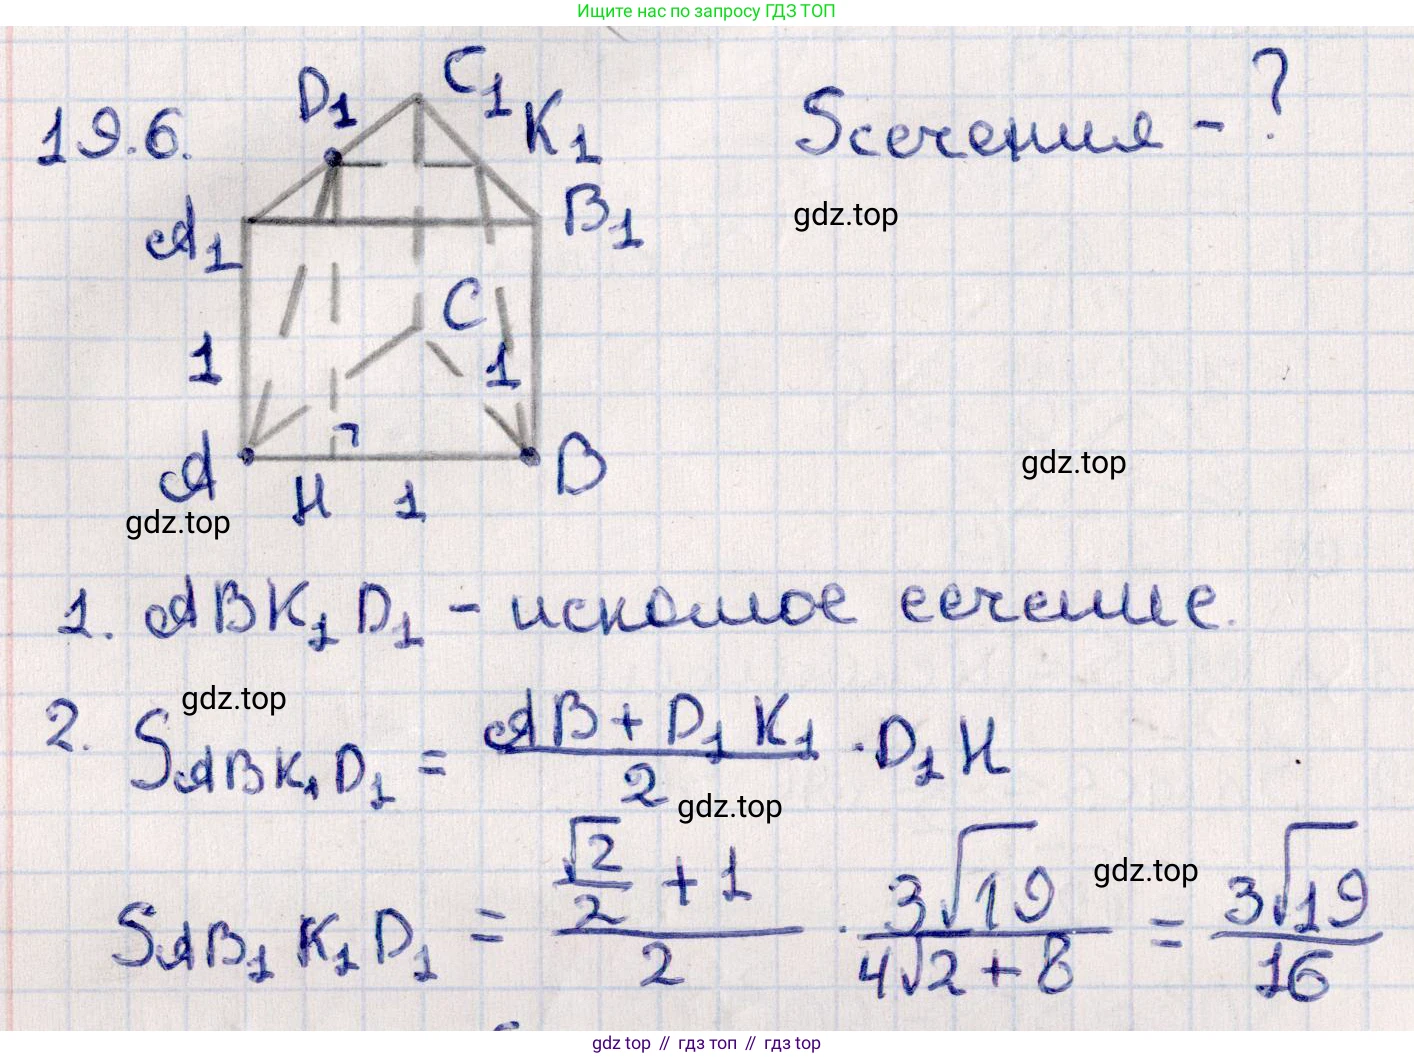 Ищите нас по запросу ГДЗ ТОП
19.6.
D₁ C₁ K₁
Sсечения - ?
A₁ B₁
gdz.top
1 C 1
A H 1 B
gdz.top
gdz.top
1. ABK₁D₁ - искомое сечение.
gdz.top
2. S_{ABK₁D₁} = \frac{AB + D₁K₁}{2} · D₁H
gdz.top
S_{AB₁K₁D₁} = \frac{\frac{√2}{2} + 1}{2} · \frac{3√19}{4√2 + 8} = \frac{3√19}{16}
gdz.top
gdz top // гдз топ // гдз top